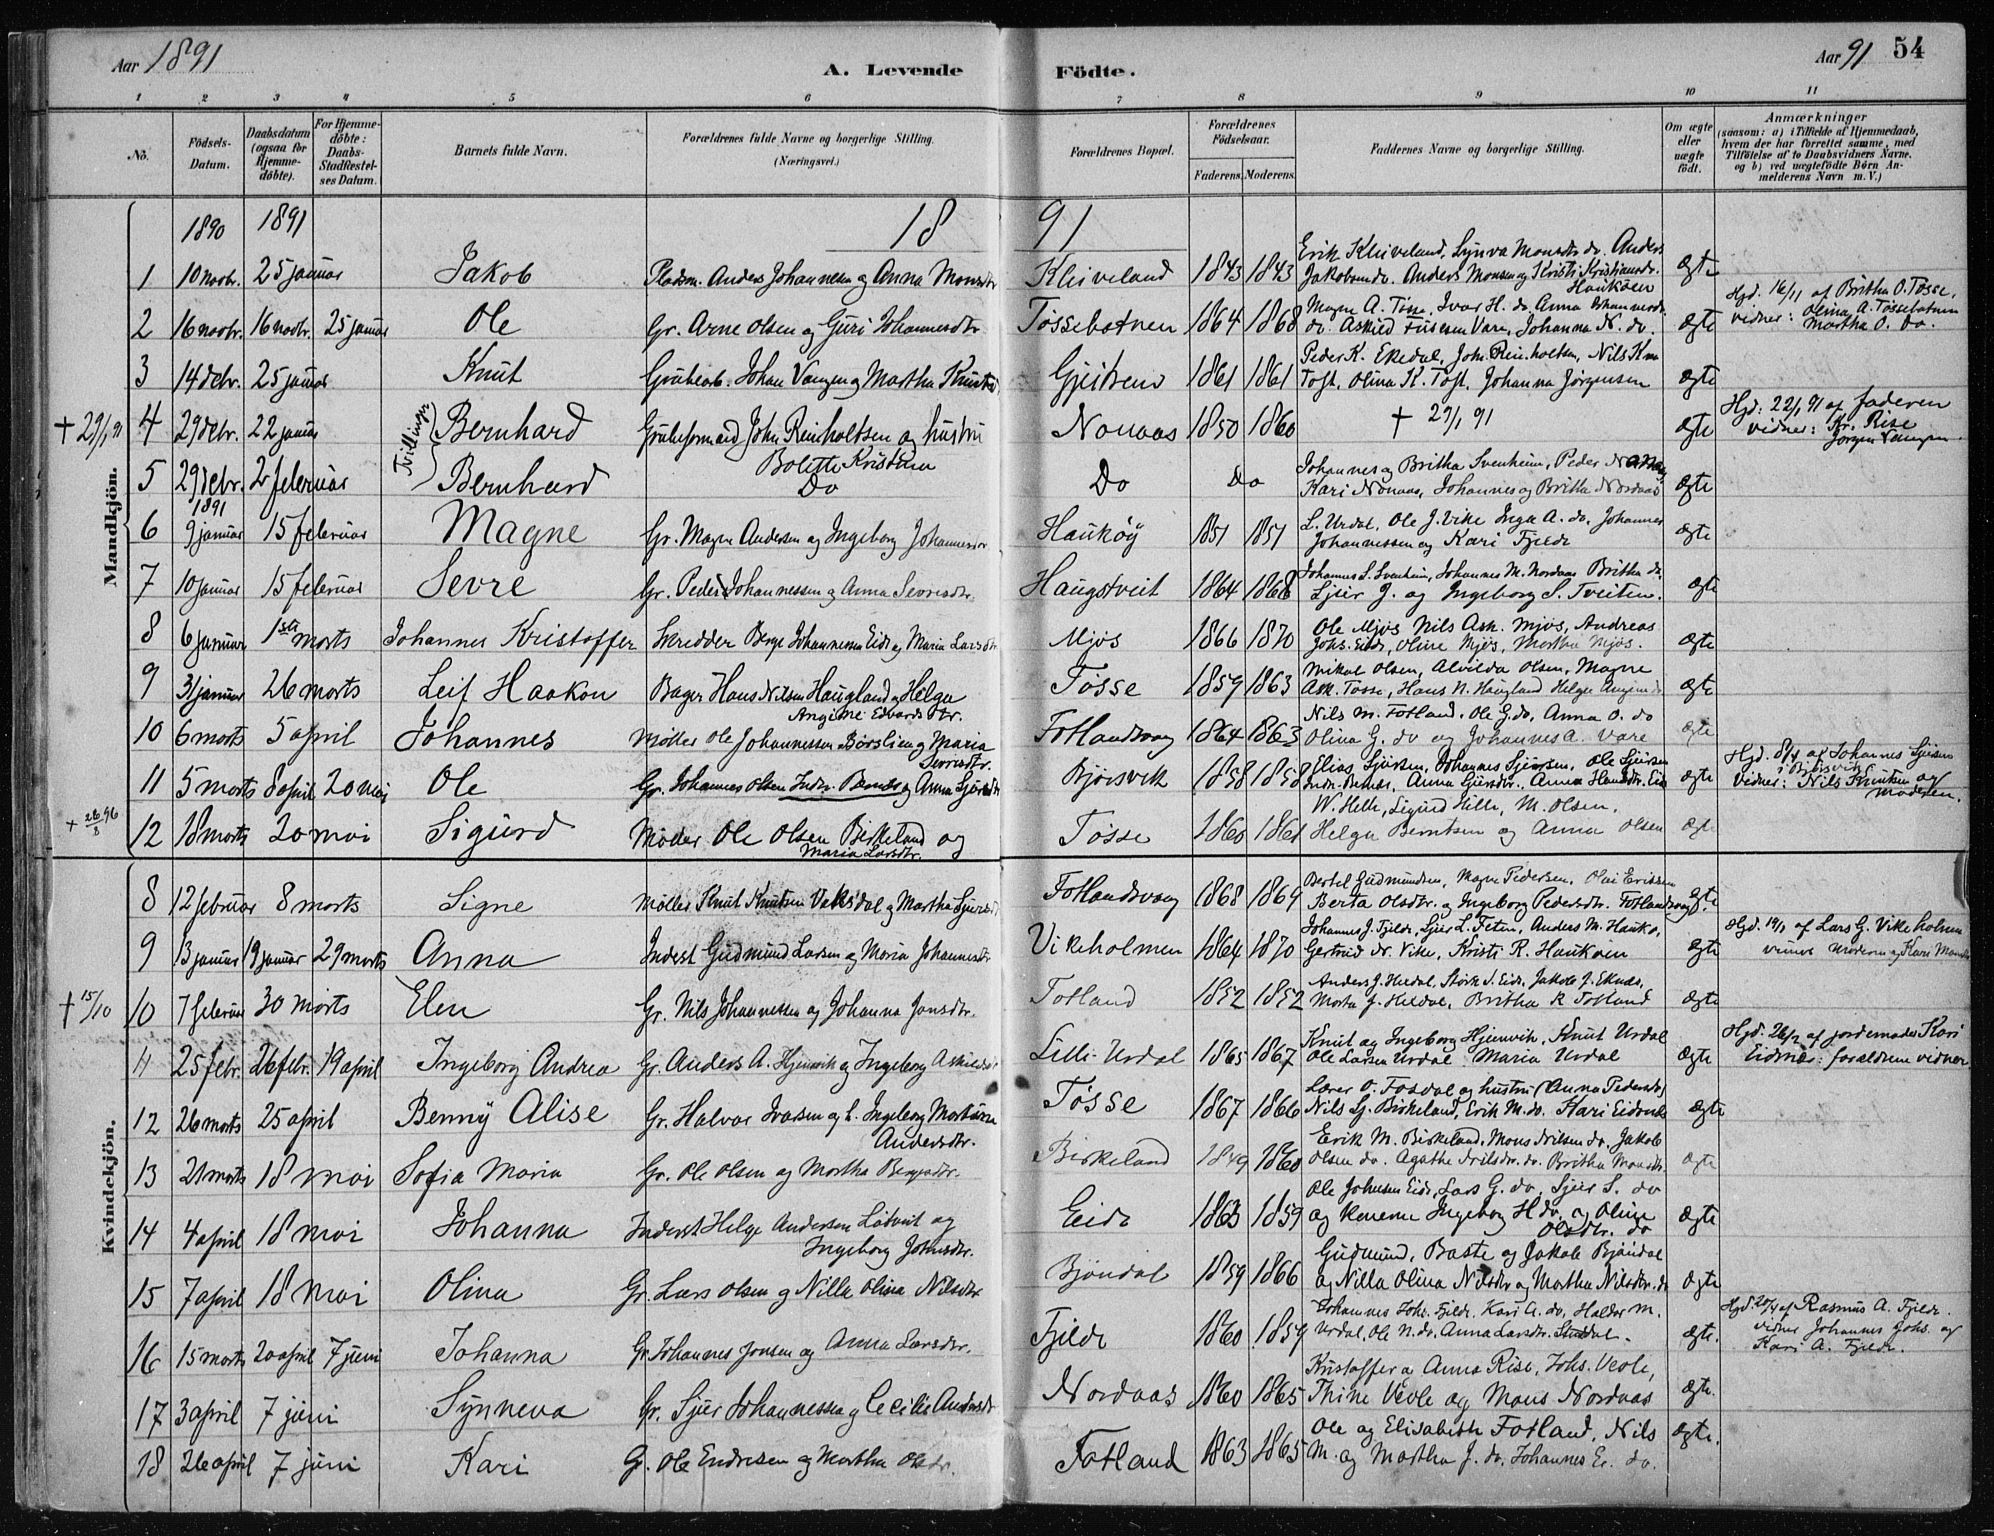 Aar 1891
A. Levende
Födte.
Aar 91 54
1 2 3 4 5 6 7 8 9 10 11
No.
Födsels-Datum.
Daabsdatum (ogsaa for Hjemme-döbte).
For Hjemme-döbte: Daabs-Stadfestel-ses Datum.
Barnets fulde Navn.
Forældrenes fulde Navne og borgerlige Stilling. (Næringsvei.)
Forældrenes Bopæl.
Forældrenes Födselsaar.
Faderens. Moderens.
Faddernes Navne og borgerlige Stilling.
Om ægte eller uægte födt.
Anmærkninger
(saasom: a) i Tilfælde af Hjemmedaab, hvem der har forrettet samme, med Tilföielse af to Daabsvidners Navne, og b) ved uægtefödte Börn An-melderens Navn m. V.)
Mandkjön.
1890 1891 18 91
1 10 novbr. 25 januar Jakob Pladsm. Anders Johannesen og Anna Monsdtr Kleiveland 1843 1843 Erik Kleiveland, Synva Monsdtr do. Anders Jakobsen do. Anders Monsen og Kristi Kristiansdr. Haukøen ægte
2 16 novbr. 16 novbr. 25 januar Ole Gr. Arne Olsen og Guri Johannesdtr Tøssebotnen 1864 1868 Magne A. Tøsse, Ivar H. do. Anna Johannesdr do. Askild Fuesen Vare, Johanna N. do. ægte Hjd. 16/11 af Britha O. Tøsse, vidner: Olina A. Tøssebotnen Martha O. Do.
3 14 debr. 25 januar Knut Grubearb. Johan Vangen og Martha Knutsd. 1861 1861 Peder K. Ekedal, Joh. Reinholtsen, Nils K. Toft, Olina K. Toft, Johanna Jørgensen ægte
+ 29/1 91 4 29 debr. 22 januar Tvillinger Bernhard Grubeformand John Reinholtsen og hustru Bolette Kristina Nonaas 1850 1860 + 29/1 91 ægte Hjd: 22/1 91 af faderen vidner: Kr. Rise Jørgen Vangen.
5 29 debr. 2 februar Bernhard Do Do Do Johannes og Britha Svenheim, Peder Nonaas, Kari Nonaas, Johannes og Britha Nordaas ægte
1891
6 9 januar 15 februar Magne Gr. Magne Andersen og Ingeborg Johannesdr Haukøy 1851 1851 L. Urdal, Ole J. Vike Inga A. do. Johannes Johannessen og Kari Fjelde ægte
7 10 januar 15 februar Sevre Gr. Peder Johannessen og Anna Sevresdtr. Haugstveit 1864 1868 Johannes S. Svenheim, Johannes M. Nordaas Britha do. Sjur J. og Ingeborg S. Tveiten. ægte
8 6 januar 1ste marts Johannes Kristoffer Skredder Berge Johannesen Eide og Maria Larsdtr Mjøs 1866 1870 Ole Mjøs Nils Ask. Mjøs, Andreas Johs. Eide, Oline Mjøs, Martha Mjøs. ægte
9 31 januar 26 marts Leif Haakon Bager Hans Nilsen Haugland og Helga Angine Edvardsdtr. Tøsse 1859 1863 Mikal Olsen, Alvilda Olsen, Magne Ask. Tøsse, Hans N. Haugland Helga ægte
10 6 marts 5 april Johannes Møller Ole Johannessen Børslien og Maria Sevresdtr. Fotlandsvaag 1864 1863 Nils M. Fotland, Ole G. do, Anna O. do Olina G. do og Johannes A. Vare ægte
11 5 marts 8 april 20 mai Ole Gr. Johannes Olsen Indr. Bernes og Anna Sjursdtr Bjørsvik 1858 1858 Elias Sjursen, Johannes Sjursen, Ole Sjursen Indr. Bernes, Anna Sjursdtr., Anna Hansdtr. Eide ægte Hjd. 8/4 af Johannes Sjursen i Bjørsvik Vidner: Nils Knutsen og moderen.
+ 26/8 96 12 18 marts 20 mai Sigurd Møder Ole Olsen Birkeland og Maria Larsdtr. Tøsse 1860 1861 W. Helle, Sigurd Helle, M. Olsen, Helga Berntsen og Anna Olsen ægte
Kvindekjön.
8 12 februar 8 marts Signe Møller Knut Knutsen Vaksdal og Martha Sjursdt Fotlandsvaag 1868 1869 Bertel Gudmundsen, Magne Pedersen, Olai Erissen Berta Olsdtr. og Ingeborg Pedersdtr. Fotlandsvaag. ægte
9 13 januar 19 januar 29 marts Anna Inderst Gudmund Larsen og Maria Johannesdtr Vikeholmen 1864 1870 Johannes J. Fjelde, Sjur L. Feten, Anders M. Hauko, Gertrud do. Vike, Kristi R. Haukøen ægte Hjd. 19/1 af Lars G. Vikeholmen vidner moderen og Kari Monsdr
+ 15/10 10 7 februar 30 marts Elen Gr. Nils Johannessen og Johanna Jonsdtr. Fotland 1852 1852 Anders J. Hældal, Størk S. Eide, Jakob J. Eknes, Marta J. Heldal, Britha R Fotland ægte
11 25 febr. 26 febr. 19 april Ingeborg Andrea Gr. Anders A. Hjemvik og Ingeborg Askildsdr Lille-Urdal 1865 1867 Knut og Ingeborg Hjemvik, Knut Urdal Ole Larsen Urdal, Maria Urdal ægte Hjd. 26/2 af jordemoder Kari Eidnæs: forældrene vidner
12 26 marts 25 april Benny Alise Gr. Halvor Ivarsen og L. Ingeborg Martine Andersdtr. Tøsse 1867 1866 Lærer O. Fosdal og hustru (Anna Pedersdtr) Nils Sj. Birkeland, Erik M. do. Kari Eidnes ægte
13 21 marts 18 mai Sofia Maria Gr. Ole Olsen og Martha Bergesdtr. Birkeland 1849 1860 Erik M. Birkeland, Mons Nilsen do, Jakob Olsen do. Agathe Nilsdr. do. Britha Monsdtr. ægte
14 4 april 18 mai Johanna Inderst Helge Andersen Løtveit og Ingeborg Johnsdtr. Eide 1863 1859 Ole Johnsen Eide, Lars G. do, Sjur S. do og konerne Ingeborg H. do. og Oline Olsdtr. do ægte
15 7 april 18 mai Olina Gr. Lars Olsen og Nilla Olina Nilsdtr Bjøndal 1859 1866 Gudmund, Baste og Jakob Bjøndal og Nilla Olina Nilsdtr og Martha Nilsdtr. do ægte
16 15 marts 20 april 7 juni Johanna Gr. Johannes Jonsen og Anna Larsdtr. Fjelde 1860 1859 Johannes Johs. Fjelde, Kari A. do, Haldor M. Urdal, Ole N. do. Anna Larsdr. ægte. Hjd. 20/4 af Rasmus A. Fjelde. vidner Johannes Johs. og Kari A. Fjelde.
17 3 april 7 juni Synneva Gr. Sjur Johannessen og Cecilie Andersdr Nordaas 1860 1865 Kristoffer og Anna Rise, Johs. Veole, Thine Veole og Mons Nordaas ægte.
18 26 april 7 juni Kari G. Ole Endresen og Martha Olsdr. Fotland 1863 1865 Ole og Elisabeth Fotland, Nils M. og Martha J. do, Johannes E. do. ægte.